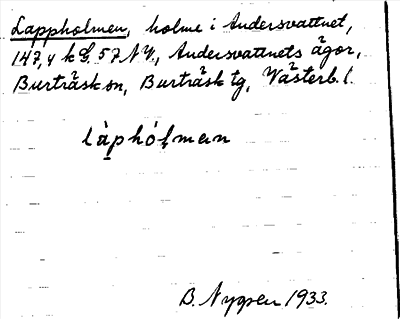 Lappholmen, holme i Andersvattnet,
147,4 k S. 57 NY., Andersvattnets ägor,
Burträsk sn, Burträsk tg, Västerb. l.
làphólman
B. Nygren 1933.